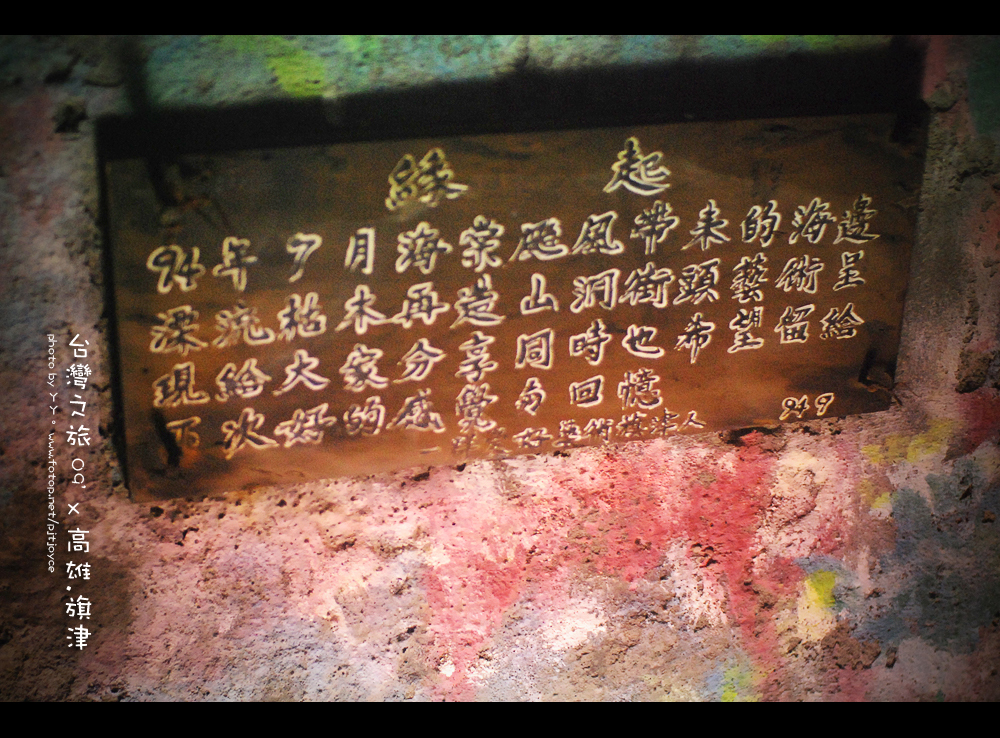 緣起
94年7月海棠颱風帶來的海邊
深流枯木再造山洞街頭藝術呈
現給大家分享同時也希望留給
下次好的感覺與回憶
好藝術旗津人
94 9
台灣之旅 09' x 高雄.旗津
photo by YY。www.fotop.net/pjtjoyce